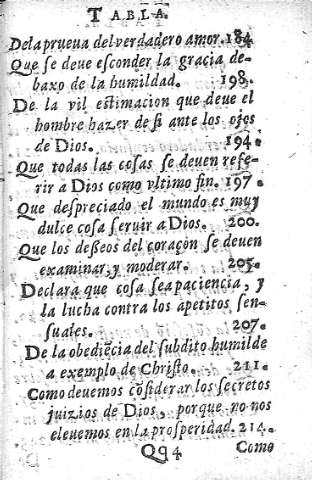 TABLA.
De la prueua del verdadero amor. 184
Que ſe deue eſconder la gracia de-
baxo de la humildad. 198.
De la vil eſtimacion que deue el
hombre hazer de ſi ante los ojos
de Dios. 194.
Que todas las coſas ſe deuen refe-
rir a Dios como vltimo fin. 197.
Que deſpreciado el mundo es muy
dulce coſa ſeruir a Dios. 200.
Que los deſſeos del coraçon ſe deuen
examinar, y moderar. 205.
Declara que coſa ſea paciencia, y
la lucha contra los apetitos ſen-
ſuales. 207.
De la obediẽcia del ſubdito humilde
a exemplo de Chriſto. 211.
Como deuemos cõſiderar los ſecretos
juizios de Dios, porque no nos
eleuemos en la proſperidad. 214.
Qq4 Como